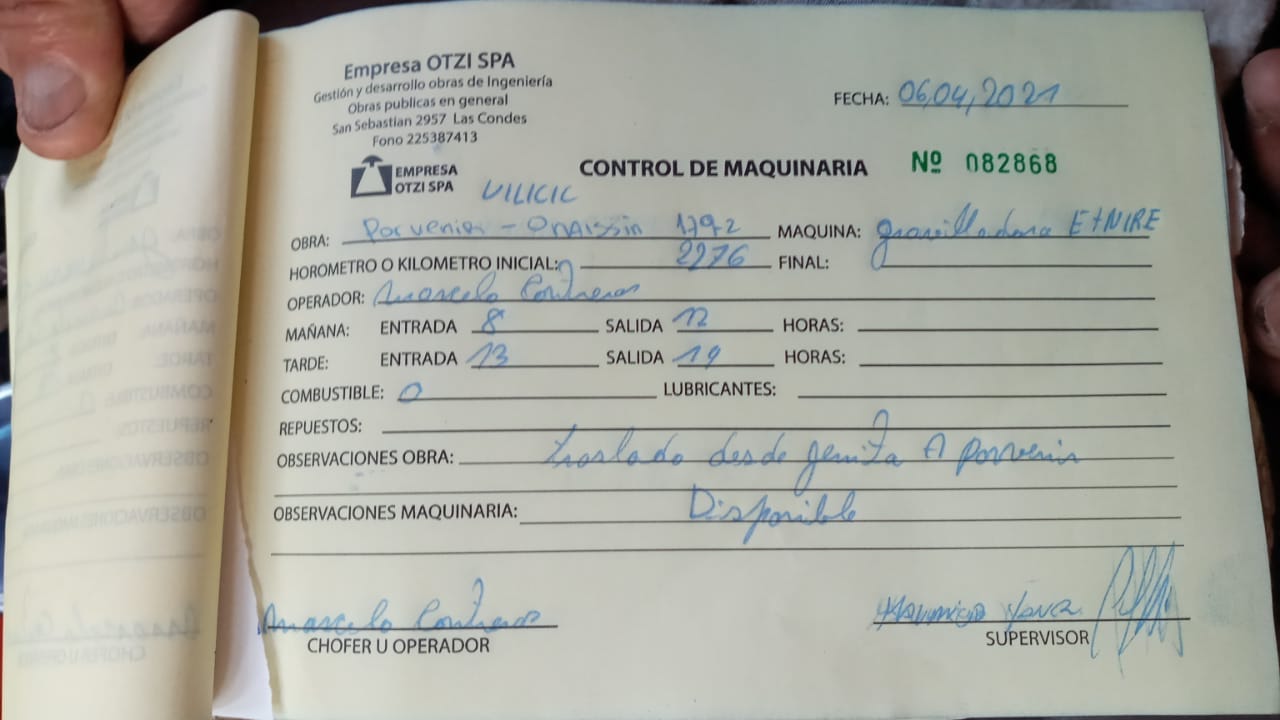 Empresa OTZI SPA
Gestión y desarrollo obras de Ingeniería
Obras publicas en general
San Sebastian 2957 Las Condes
Fono 225387413
FECHA: 06,04,2021
EMPRESA
OTZI SPA
VILICIC
CONTROL DE MAQUINARIA Nº 082868
OBRA: Porvenir - Onaissin 1792 MAQUINA: gravilladora ETNIRE
HOROMETRO O KILOMETRO INICIAL: 2276 FINAL:
OPERADOR: Marcelo Contreras
MAÑANA: ENTRADA 8 SALIDA 12 HORAS:
TARDE: ENTRADA 13 SALIDA 19 HORAS:
COMBUSTIBLE: 0 LUBRICANTES:
REPUESTOS:
OBSERVACIONES OBRA: traslado desde A porvenir
OBSERVACIONES MAQUINARIA: Disponible
Marcelo Contreras
CHOFER U OPERADOR
SUPERVISOR